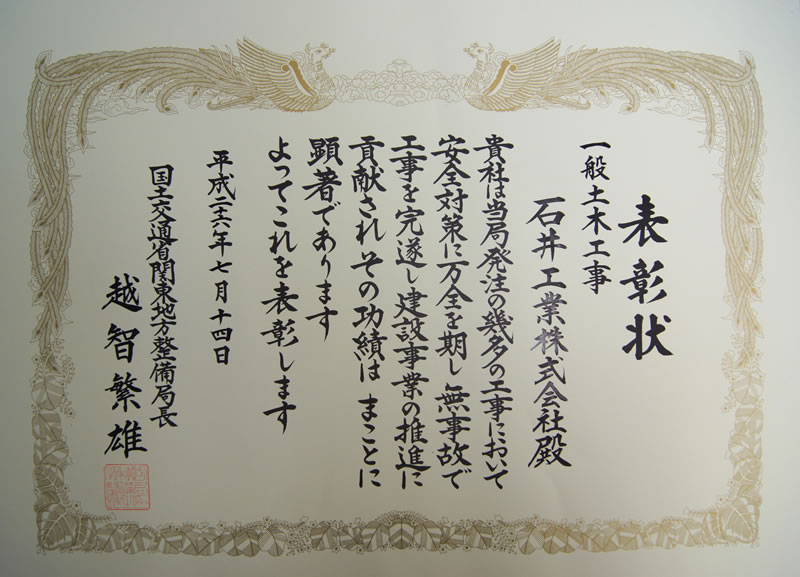 表彰状
一般土木工事
石井工業株式会社殿
貴社は当局発注の幾多の工事において
安全対策に万全を期し 無事故で
工事を完遂し 建設事業の推進に
貢献されその功績は まことに
顕著であります
よってこれを表彰します
平成二十六年七月十四日
国土交通省関東地方整備局長
越智繁雄